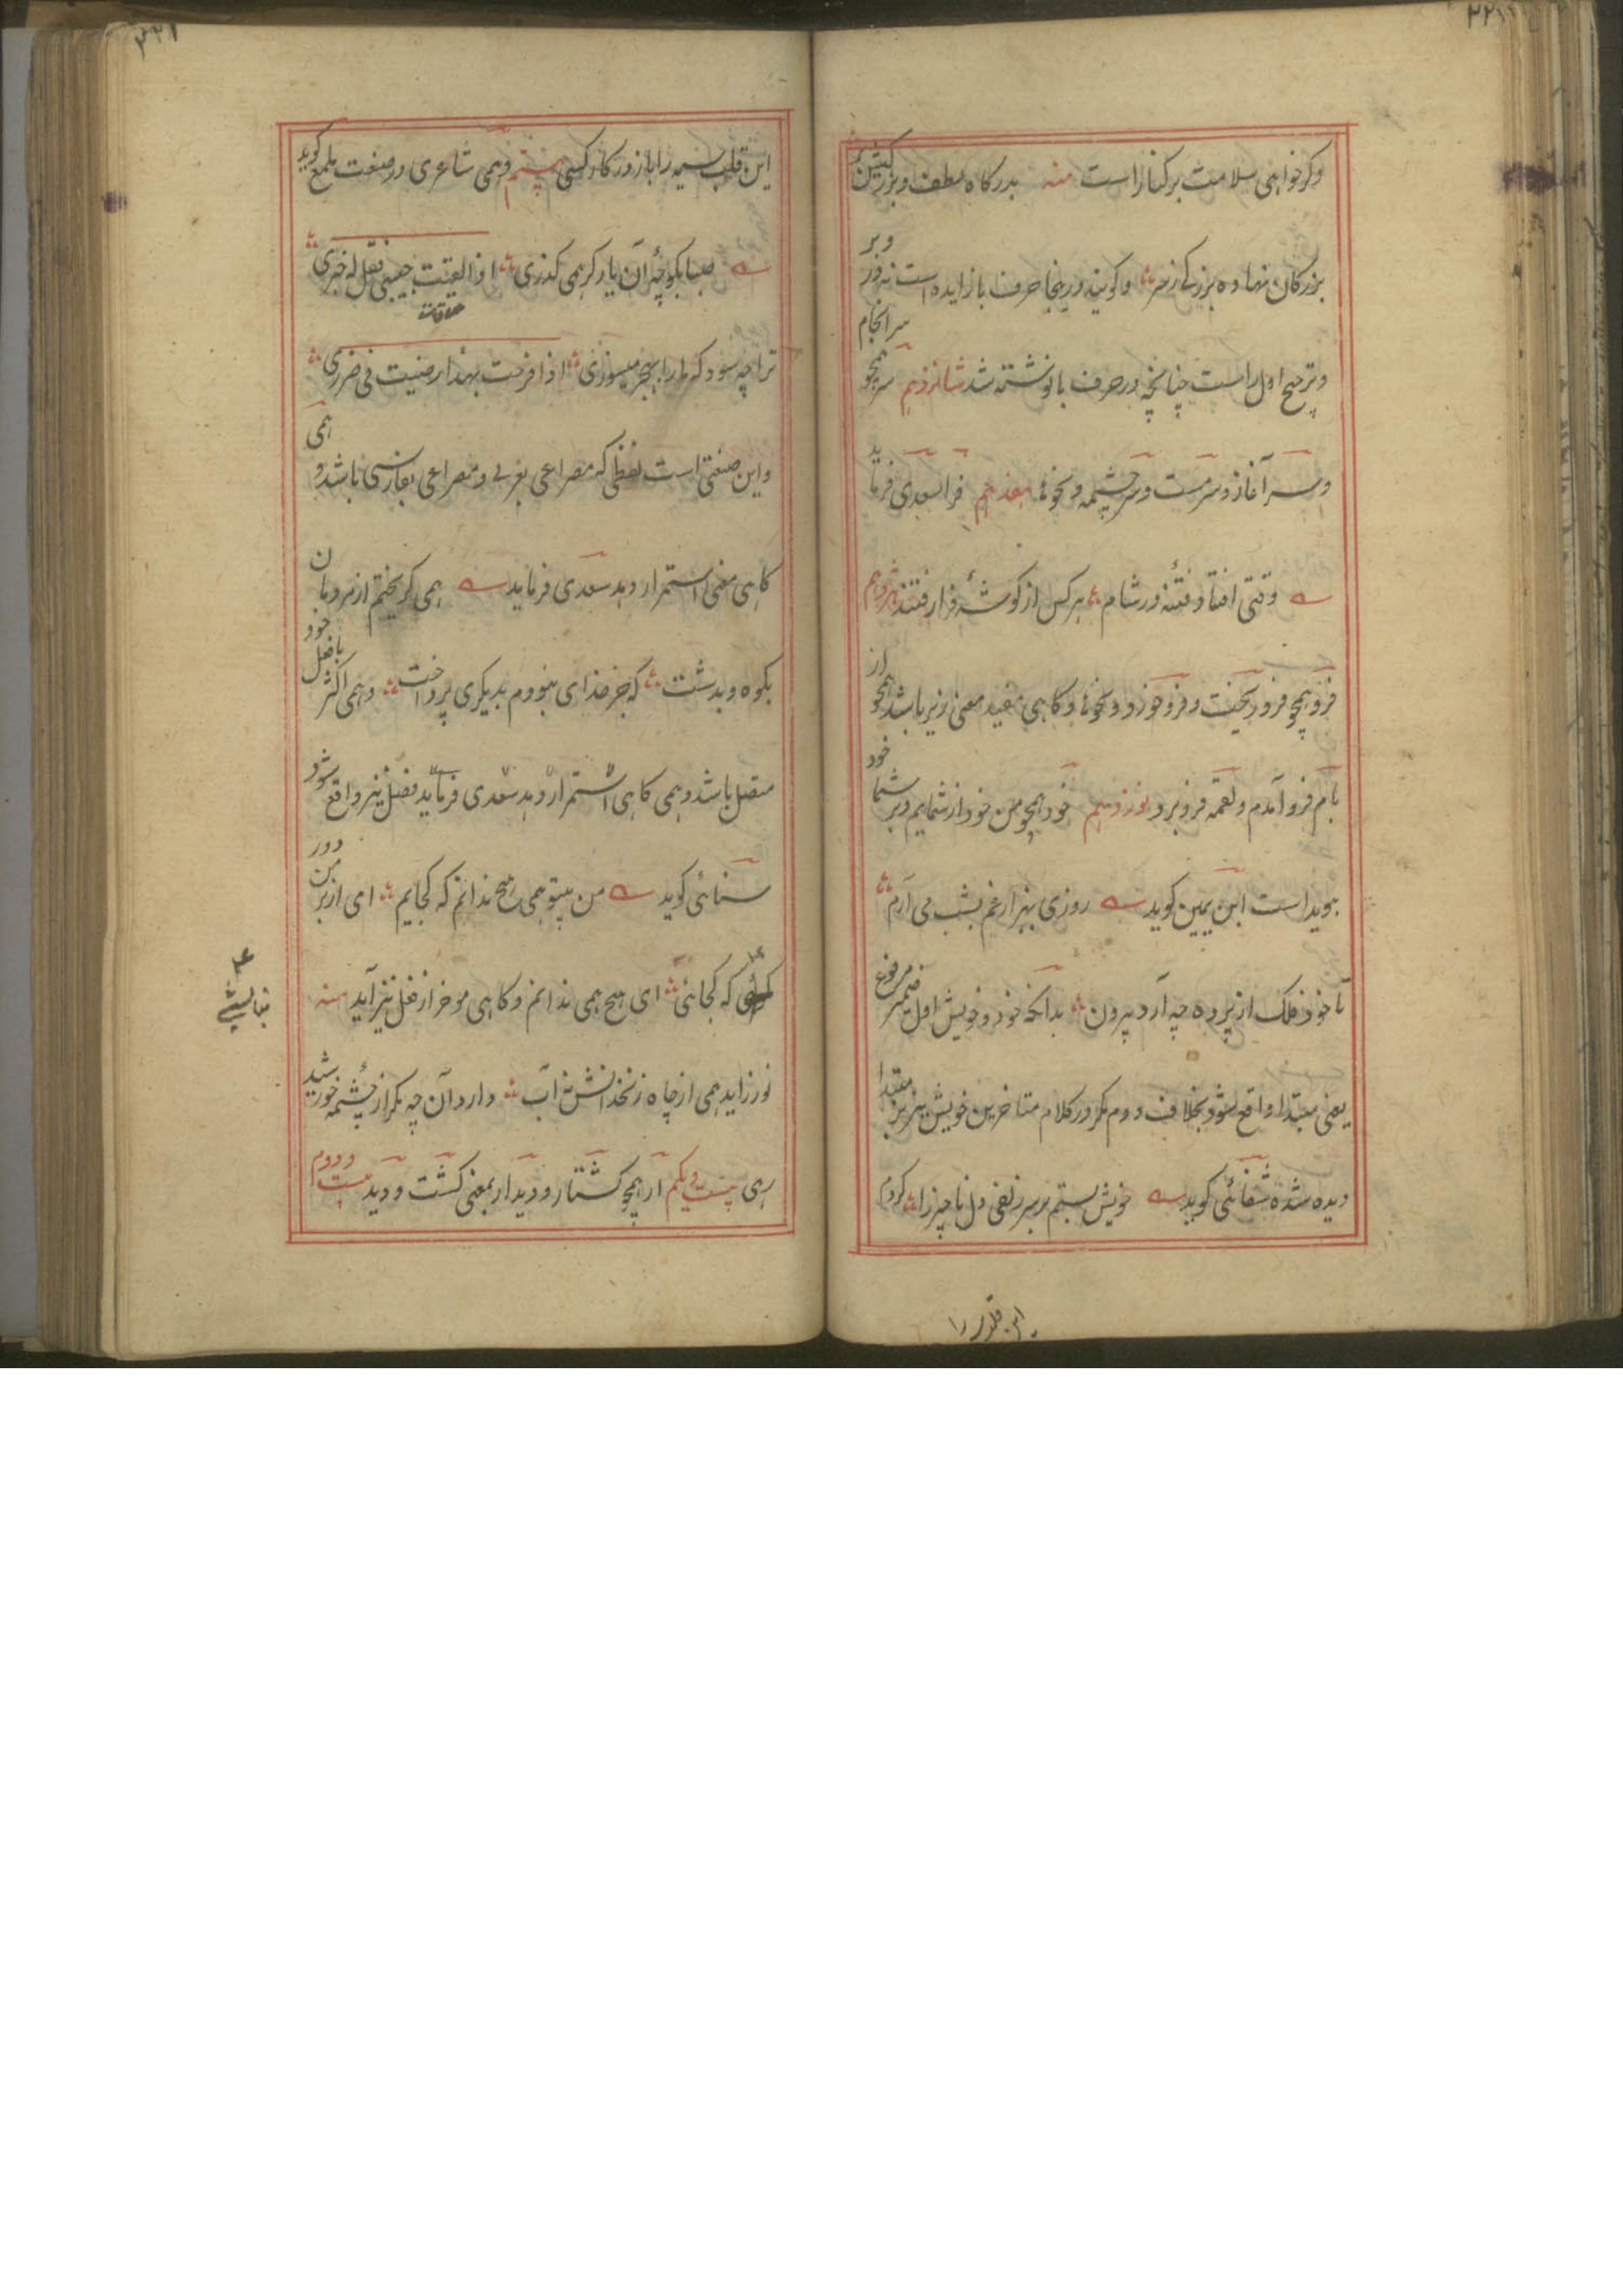 ۲۲۱
وکر خواهی سلامت بر کنار است منه بدرکاه لطف و بزرکیش بر
بزرکان نهاده بزرکی ز سر و کویند درینجا حرف با زایده است نه در و بر
و ترجیح اول راست چنانچه در حرف با نوشته شد شانزدهم سر همچو سر انجام
و سر آغاز و سرمست و سر چشمه و نحوها هفدهم فرا سعدی فرماید
وقتی افتاد فتنه در شام هر کس از کوشه فرا رفتند هژدهم
فرو همچو فرو ریخت و فرو خورد و نحوها و کاهی مفید معنی زیر باشد همچو از
بام فرو آمدم و لقمه فرو برد نوزدهم خود همچو من خود از شمایم و بر شما خود
هویداست ابن یمین کوید روزی بهزار غم بشب می آرم
تا خود فلک از پرده چه آرد بیرون بدانکه خود و خویش اول ضمیر مرفوع
یعنی مبتدا واقع شود بخلاف دوم مکر در کلام متاخرین خویش نیز مبتدا
دیده شده شفائی کوید خویش بستم بر سر زلفی دل ناچیز را کردم
این قلب را
این قلب سیه را باز در کار کسی بیستم همی شاعری در صنعت ملمع کوید
صبا بکوچه آن یار کر همی کذری اذا لقیت حبیبی فقل له خبری
ملاقات
ترا چه سود که ما را بهجر میسوزی اذا فرحت بهذا رضیت فی ضرری
و این صنعتی است لفظی که مصراعی بعربی و مصراعی بفارسی باشد و همی
کاهی معنی استمرار دهد سعدی فرماید همی کریختم از مردمان
بکوه و بدشت که جز خدای نبودم بدیکری پرداخت و همی اکثر با فعل خود
متصل باشد و همی کاهی استمرار دهد سعدی فرماید فصل نیز واقع شود
سنائی کوید من بیتو همی هیچ ندانم که کجایم ای از بر من دور
که کجائی ای هیچ همی ندانم و کاهی موخر از فعل نیز آید منه
نور زاید همی از چاه زنخدانش آب دارد آن چه مکر از چشمه خورشید
رهی بیست و یکم آر همچو کشتار و دیدار بمعنی کشت و دید بیست و دوم